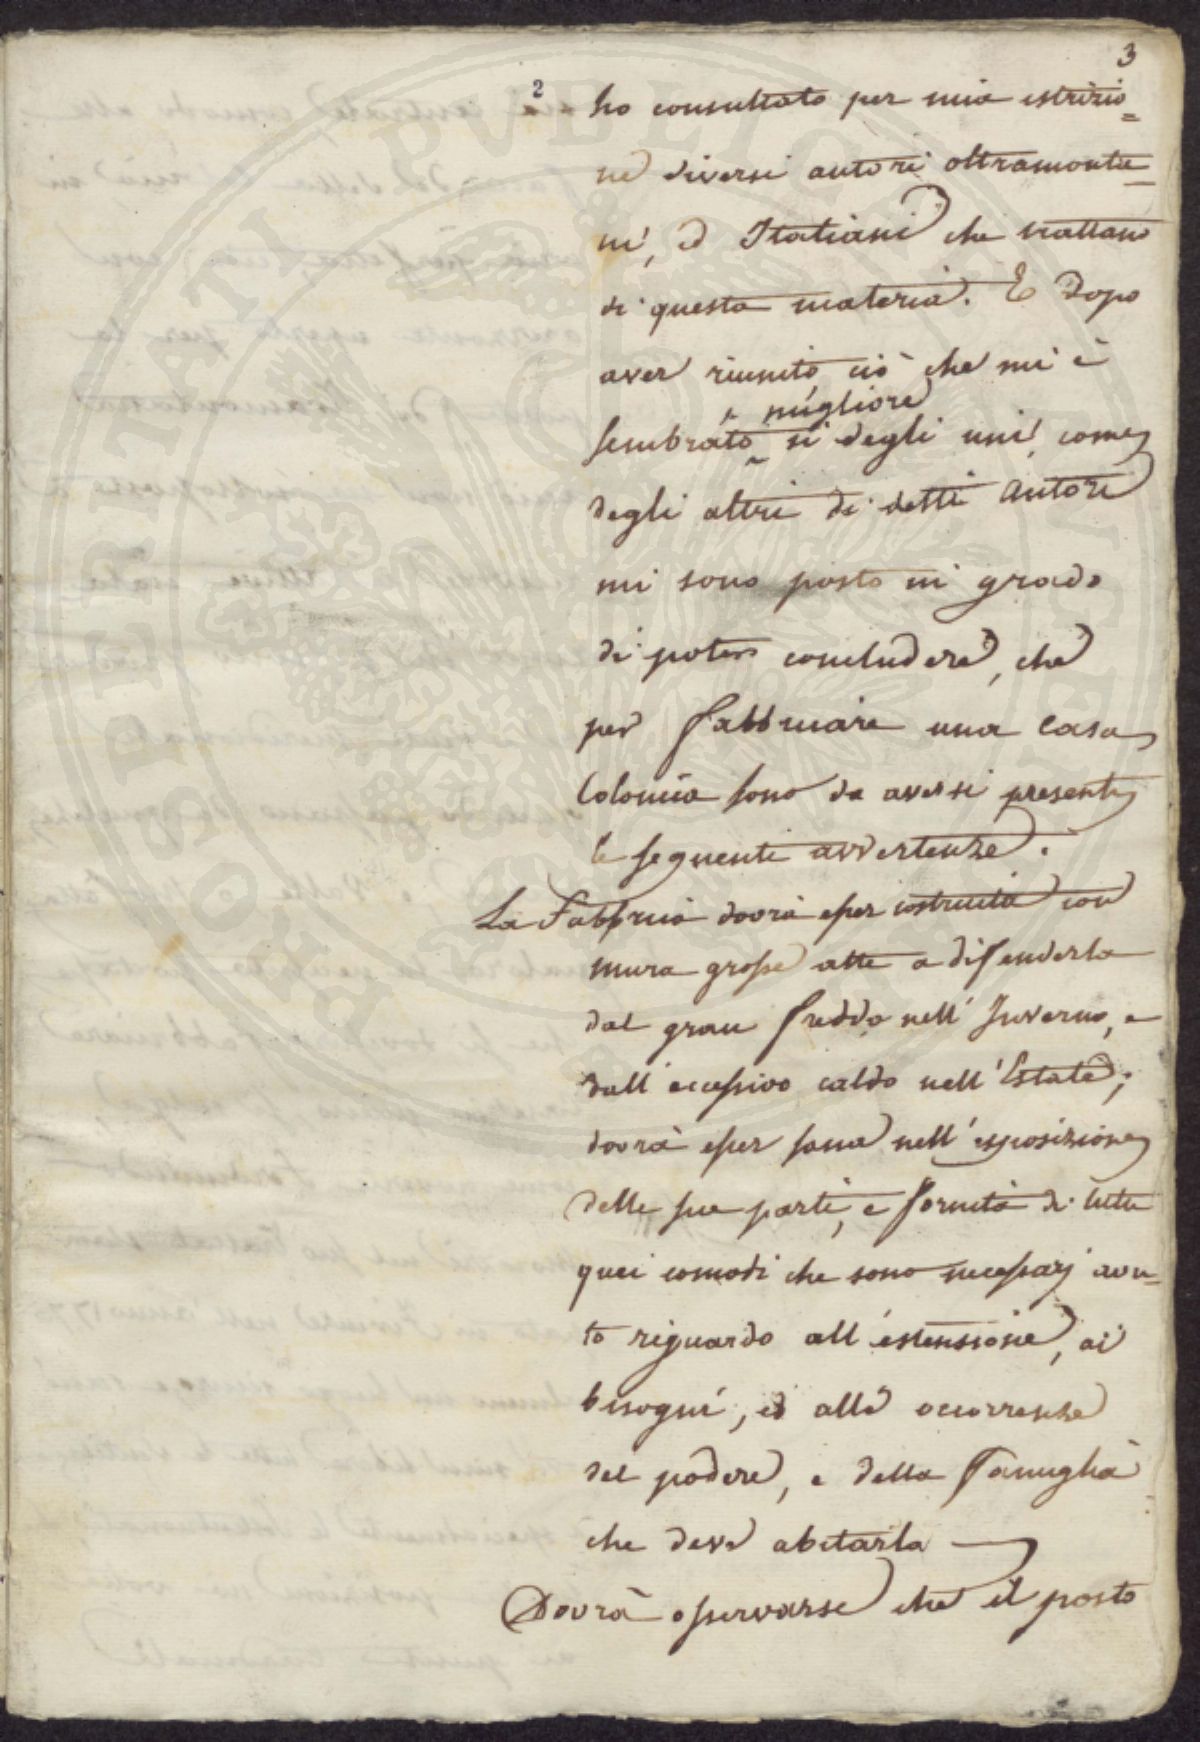 3
2
ho consultato per mia istruzio=
ne diversi autori oltramonta=
ni, ed Italiani che trattano
di questa materia. E dopo
aver riunito ciò che mi è
migliore
sembrato si degli uni, come
degli altri di detti Autori
mi sono posto in grado
di poter concludere, che
per fabbricare una Casa
Colonica sono da aversi presenti
le seguenti avvertenze.
La Fabbrica dovrà esser costruita con
mura grosse atte a difenderla
dal gran freddo nell' Inverno, e
dall' eccessivo caldo nell' Estate;
dovrà esser sana nell' esposizione
delle sue parti, e fornita di tutti
quei comodi che sono necessarj avu=
to riguardo all' estensione, ai
bisogni, ed alle occorrenze
del podere, e della Famiglia
che deve abitarla
Dovrà osservarsi che il posto